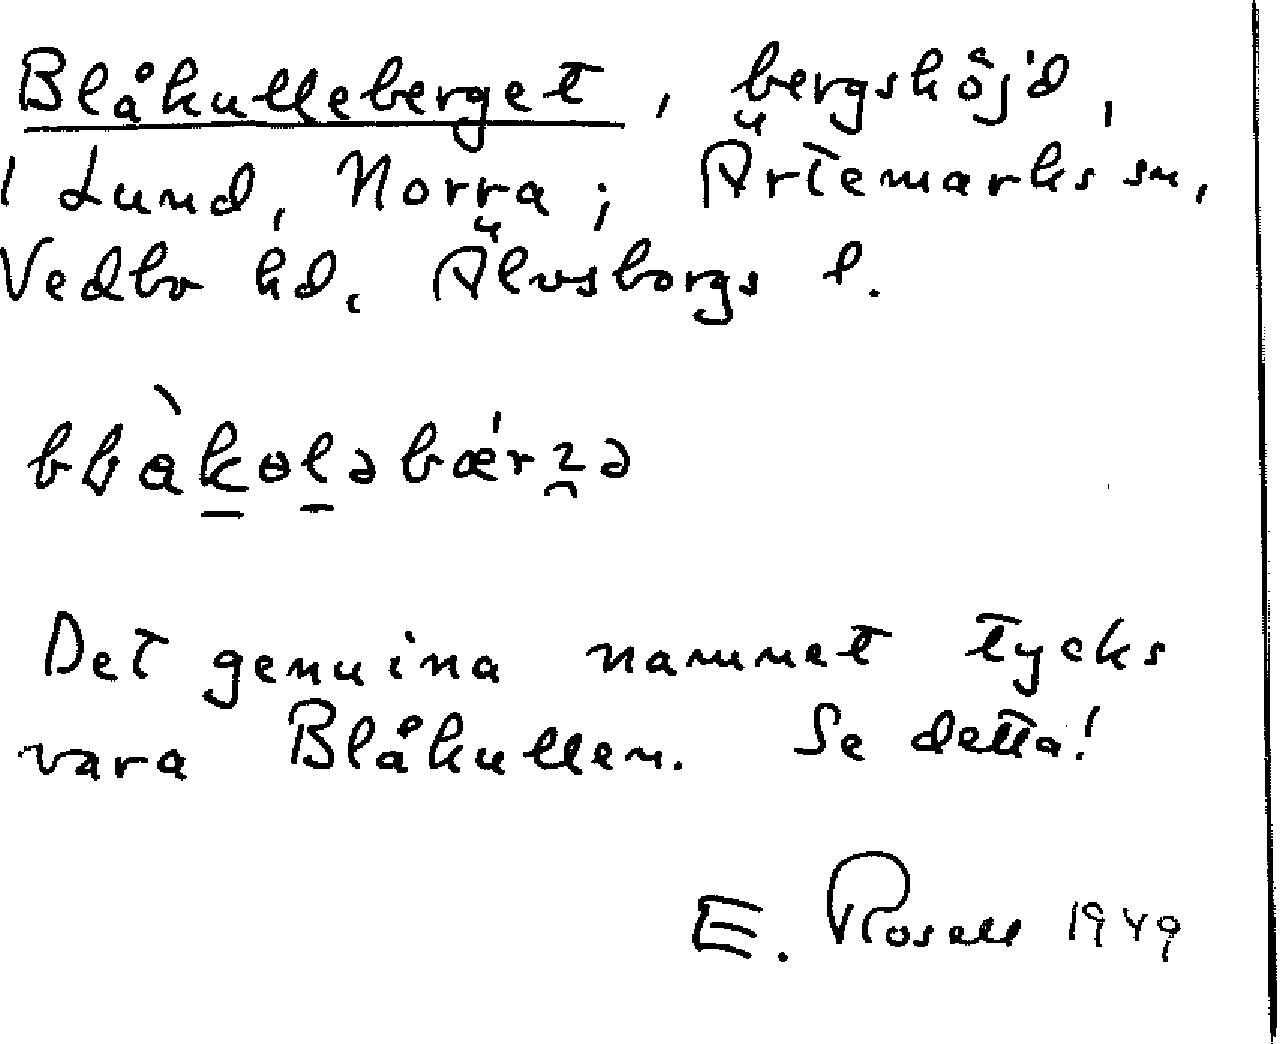 Blåkulleberget, bergshöjd,
i Lund, Norra; Ärtemarks sn,
Vedbo hd, Älvsborgs l.
Det genuina namnet tycks
vara Blåkullen. Se detta!
E. Rosell 1949